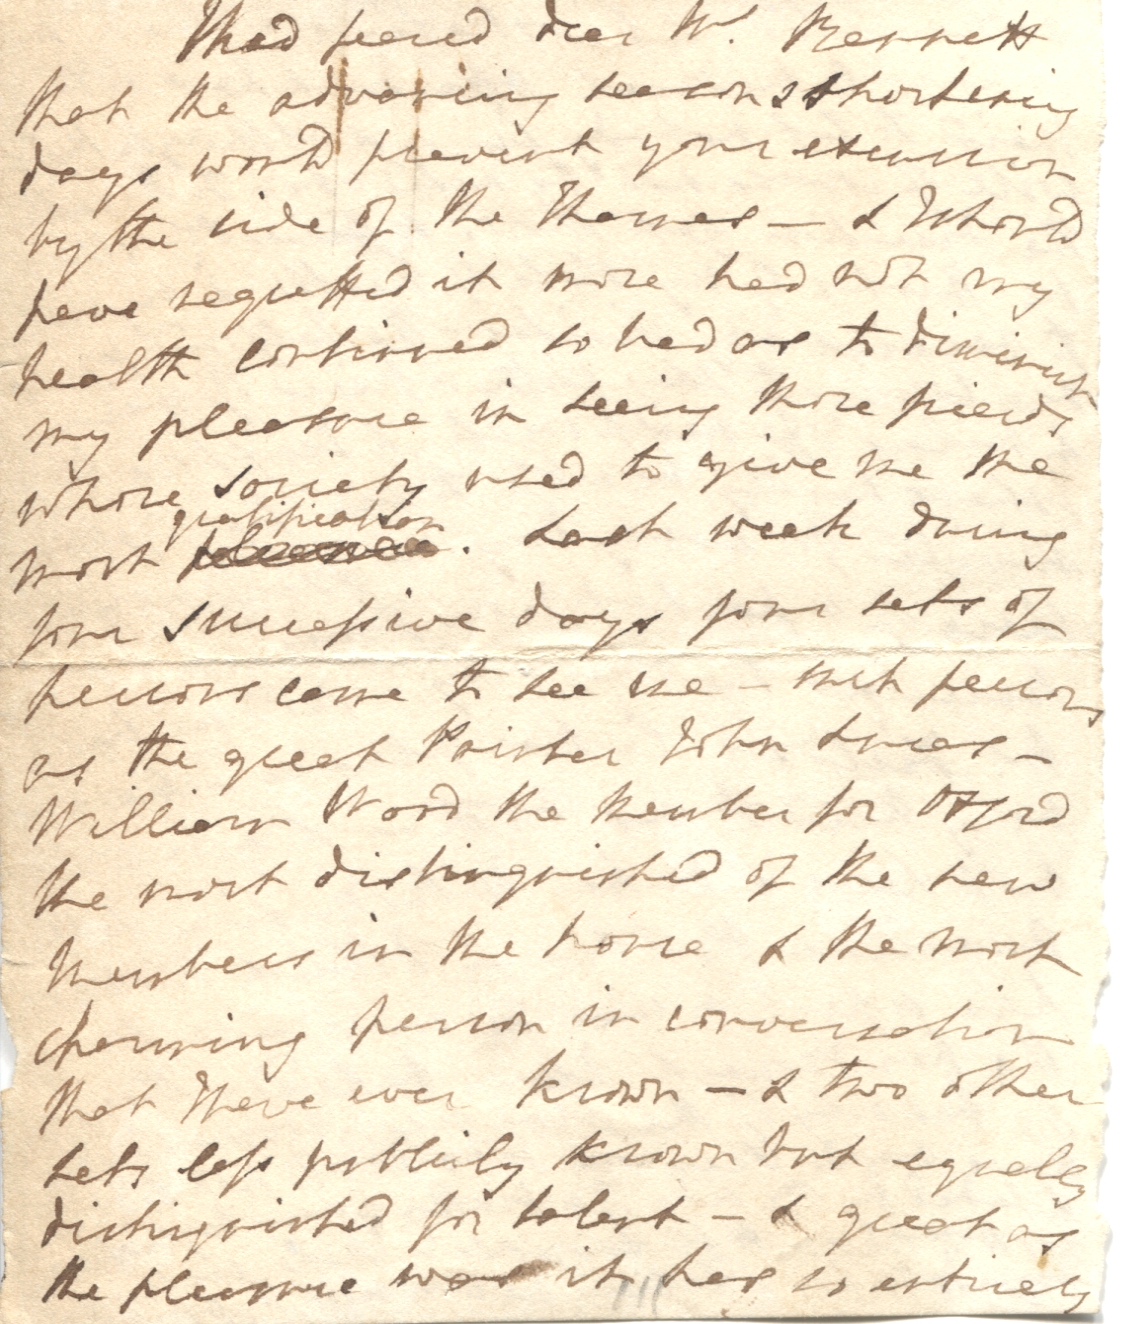 I had feared dear Mr. Bennett
that the advancing season & shortening
days would prevent your excursion
by the side of the Thames — & I should
have regretted it more had not my
health continued so bad as to diminish
my pleasure in seeing those friends
whose society used to give me the
gratification
most pleasure. Last week during
four successive days four sets of
persons came to see me — such persons
as the great Painter John Lucas —
William Wood the Member for Oxford
the most distinguished of the new
Members in the house & the most
charming person in conversation
that I have ever known — & two other
sets less publicly known but equally
distinguished for talent — & great as
the pleasure was it has so entirely